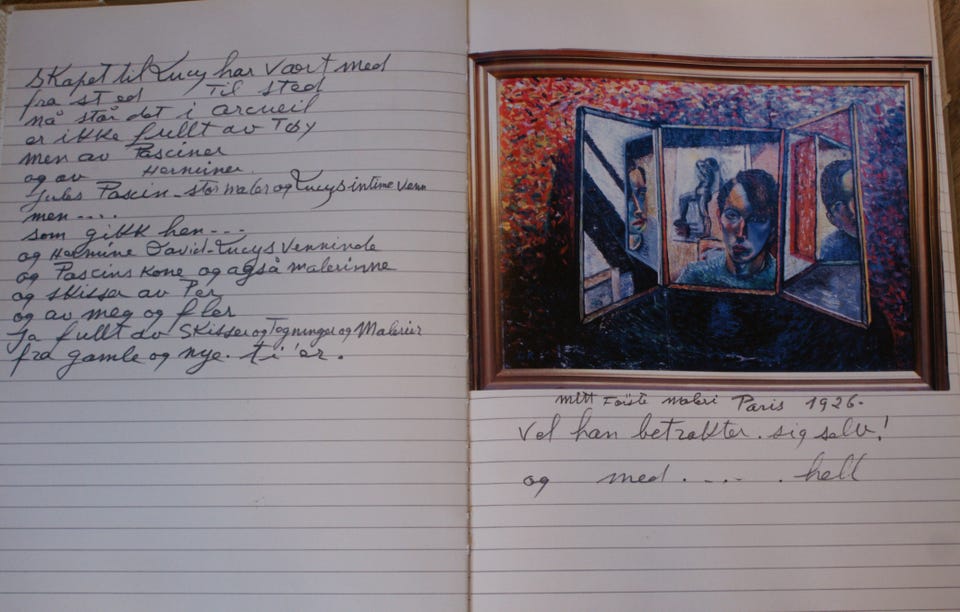 Skapet til Lucy har vært med
fra sted til sted
nå står det i arcueil
er ikke fullt av Tøy
men av Pasciner
og av Herminer
Jules Pascin - stor maler og Lucys intime venn
men ....
som gikk hen ---
og Hermine David - Lucys Venninde
og Pascins Kone og også malerinne
og skisser av Per
og av meg og fler
Ja fullt av Skisser og Tegninger og Malerier
fra gamle og nye. ti'er.
mitt Første maleri Paris 1926.
Vel han betrakter. sig selv!
og med . - - . . hell